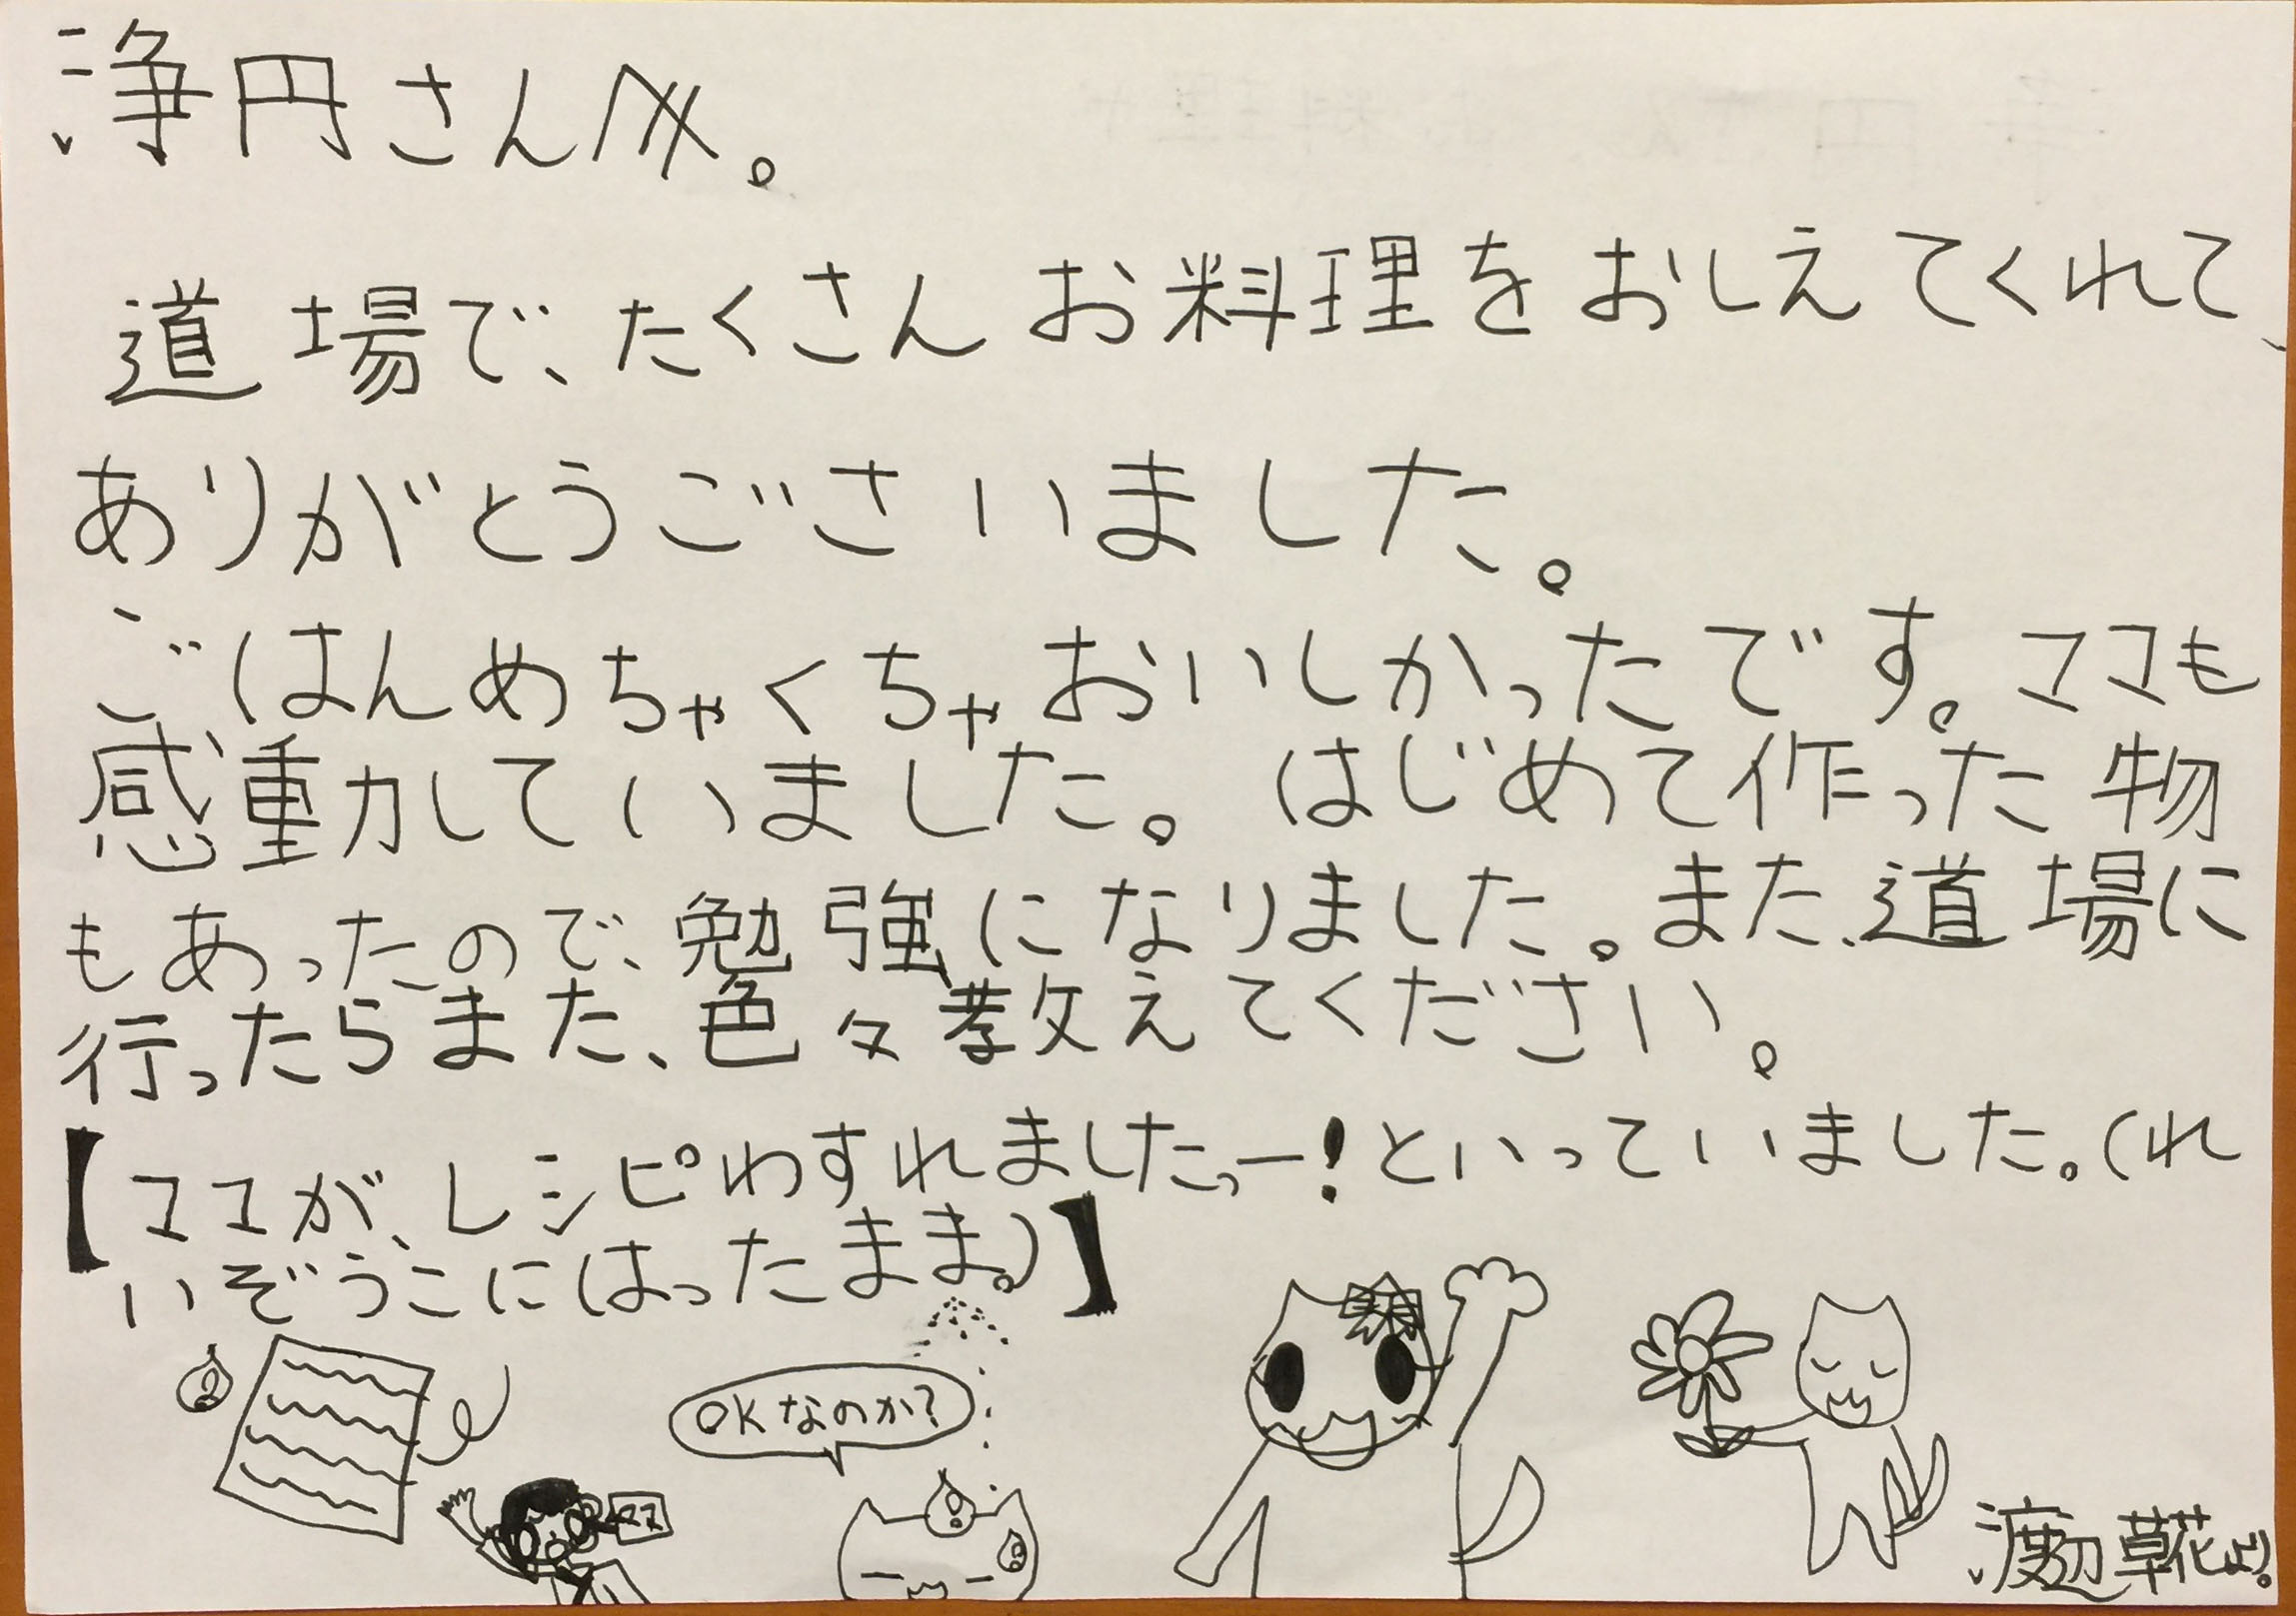 浄円さんへ。
道場で、たくさんお料理をおしえてくれて、
ありがとうごさいました。
ごはんめちゃくちゃおいしかったです。ママも
感動していました。はじめて作った物
もあったので、勉強になりました。また、道場に
行ったらまた、色々教えてください。
【ママが、レシピわすれましたっー!といっていました。(れ
いぞうこにはったまま。)】
OKなのか?
ママ
渡辺草花より。